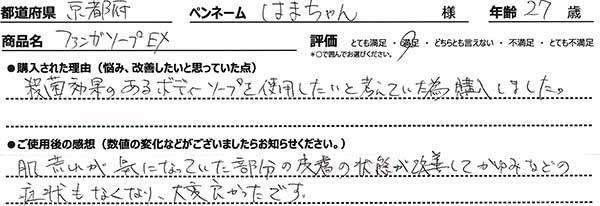 都道府県 京都府 ペンネーム はまちゃん 様 年齢 27 歳
商品名 ファンガソープEX 評価 とても満足 ・ 満足 ・ どちらとも言えない ・ 不満足 ・ とても不満足
*○で囲んでお選びください。
●購入された理由（悩み、改善したいと思っていた点）
殺菌効果のあるボディーソープを使用したいと考えていた為購入しました。
●ご使用後の感想（数値の変化などがございましたらお知らせください。）
肌荒れが気になっていた部分の皮膚の状態が改善してかゆみなどの
症状もなくなり、大変良かったです。